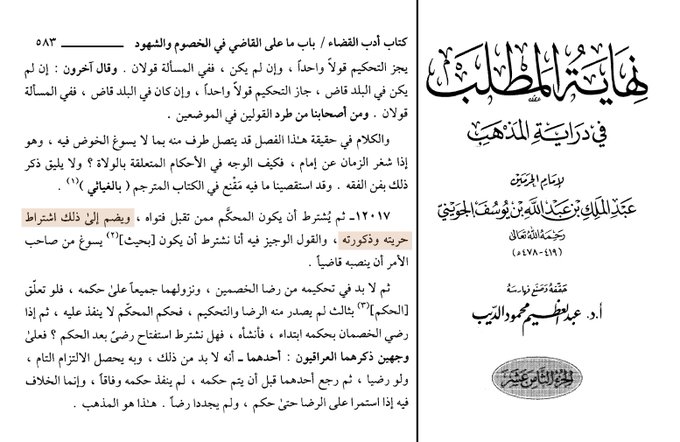 كتاب أدب القضاء / باب ما على القاضي في الخصوم والشهود ــــــــ ٥٨٣
يجز التحكيم قولاً واحداً ، وإن لم يكن ، ففي المسألة قولان . وقال آخرون : إن لم
يكن في البلد قاض ، جاز التحكيم قولاً واحداً ، وإن كان في البلد قاض ، ففي المسألة
قولان . ومن أصحابنا من طرد القولين في الموضعين .
والكلام في حقيقة هـٰذا الفصل قد يتصل طرف منه بما لا يسوغ الخوض فيه ، وهو
إذا شغر الزمان عن إمام ، فكيف الوجه في الأحكام المتعلقة بالولاة ؟ ولا يليق ذكر
ذلك بفن الفقه . وقد استقصينا ما فيه مَقْنع في الكتاب المترجم ( بالغياثي )(١) .
١٢٠١٧ـ ثم يُشترط أن يكون المحكَّم ممن تقبل فتواه ، ويضم إلىٰ ذلك اشتراط
حريته وذكورته ، والقول الوجيز فيه أنا نشترط أن يكون [بحيث](٢) يسوغ من صاحب
الأمر أن ينصبه قاضياً .
ثم لا بد في تحكيمه من رضا الخصمين ، ونزولهما جميعاً علىٰ حكمه ، فلو تعلّق
[الحكم](٣) بثالث لم يصدر منه الرضا والتحكيم ، فحكم المحكَّم لا ينفذ عليه ، ثم إذا
رضي الخصمان بحكمه ابتداء ، فأنشأه ، فهل نشترط استفتاح رضىً بعد الحكم ؟ فعلىٰ
وجهين ذكرهما العراقيون : أحدهما ـ أنه لا بد من ذلك ، وبه يحصل الالتزام التام ،
ولو رضيا ، ثم رجع أحدهما قبل أن يتم حكمه ، لم ينفذ حكمه وفاقاً ، وإنما الخلاف
فيه إذا استمرا على الرضا حتىٰ حكم ، ولم يجددا رضاً . هـٰذا هو المذهب .
نهاية المطلب
في دراية المذهب
لإمام الحرمين
عبد الملك بن عبد الله بن يوسف الجويني
رحمه الله تعالى
(٤١٩-٤٧٨هـ)
حققه وصنع فهارسه
أ.د. عبد العظيم محمود الديب
الجزء الثامن عشر